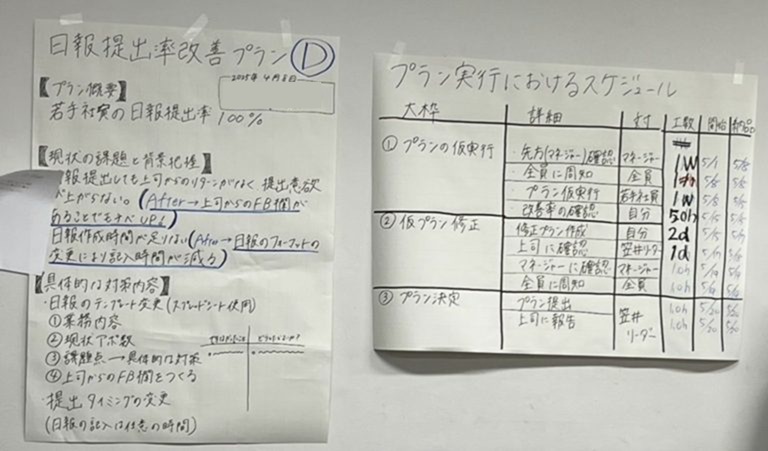 日報提出率改善プラン D
2025年4月8日
【プラン概要】
若手社員の日報提出率 100%
【現状の課題と背景把握】
報提出しても上司からのリターンがなく提出意欲
が上がらない。(After→上司からのFB欄が
あることでモチベUP↓)
日報作成時間が足りない(After→日報のフォーマットの
変更により記入時間が減る)
【具体的な対策内容】
・日報のテンプレート変更(スプレッドシート使用)
①業務内容
②現状アポ数
③課題点→具体的な対策
④上司からのFB欄をつくる
・提出タイミングの変更
(日報の記入は任意の時間)
プラン実行におけるスケジュール
大枠 詳細 対 工数 開始 納品
①プランの仮実行
・先方(マネージャー)確認 マネージャー 1W 5/1 5/8
・全員に周知 全員
・プラン仮実行 若手社員 1W
改善率の確認 自分
②仮プラン修正
修正プラン作成 自分 2d
上司に確認 笠井リーダー 1d
マネージャーに確認 マネージャー 1.0h
全員に周知 全員 1.0h
③プラン決定
プラン提出 1.0h
上司に報告 笠井リーダー 1.0h